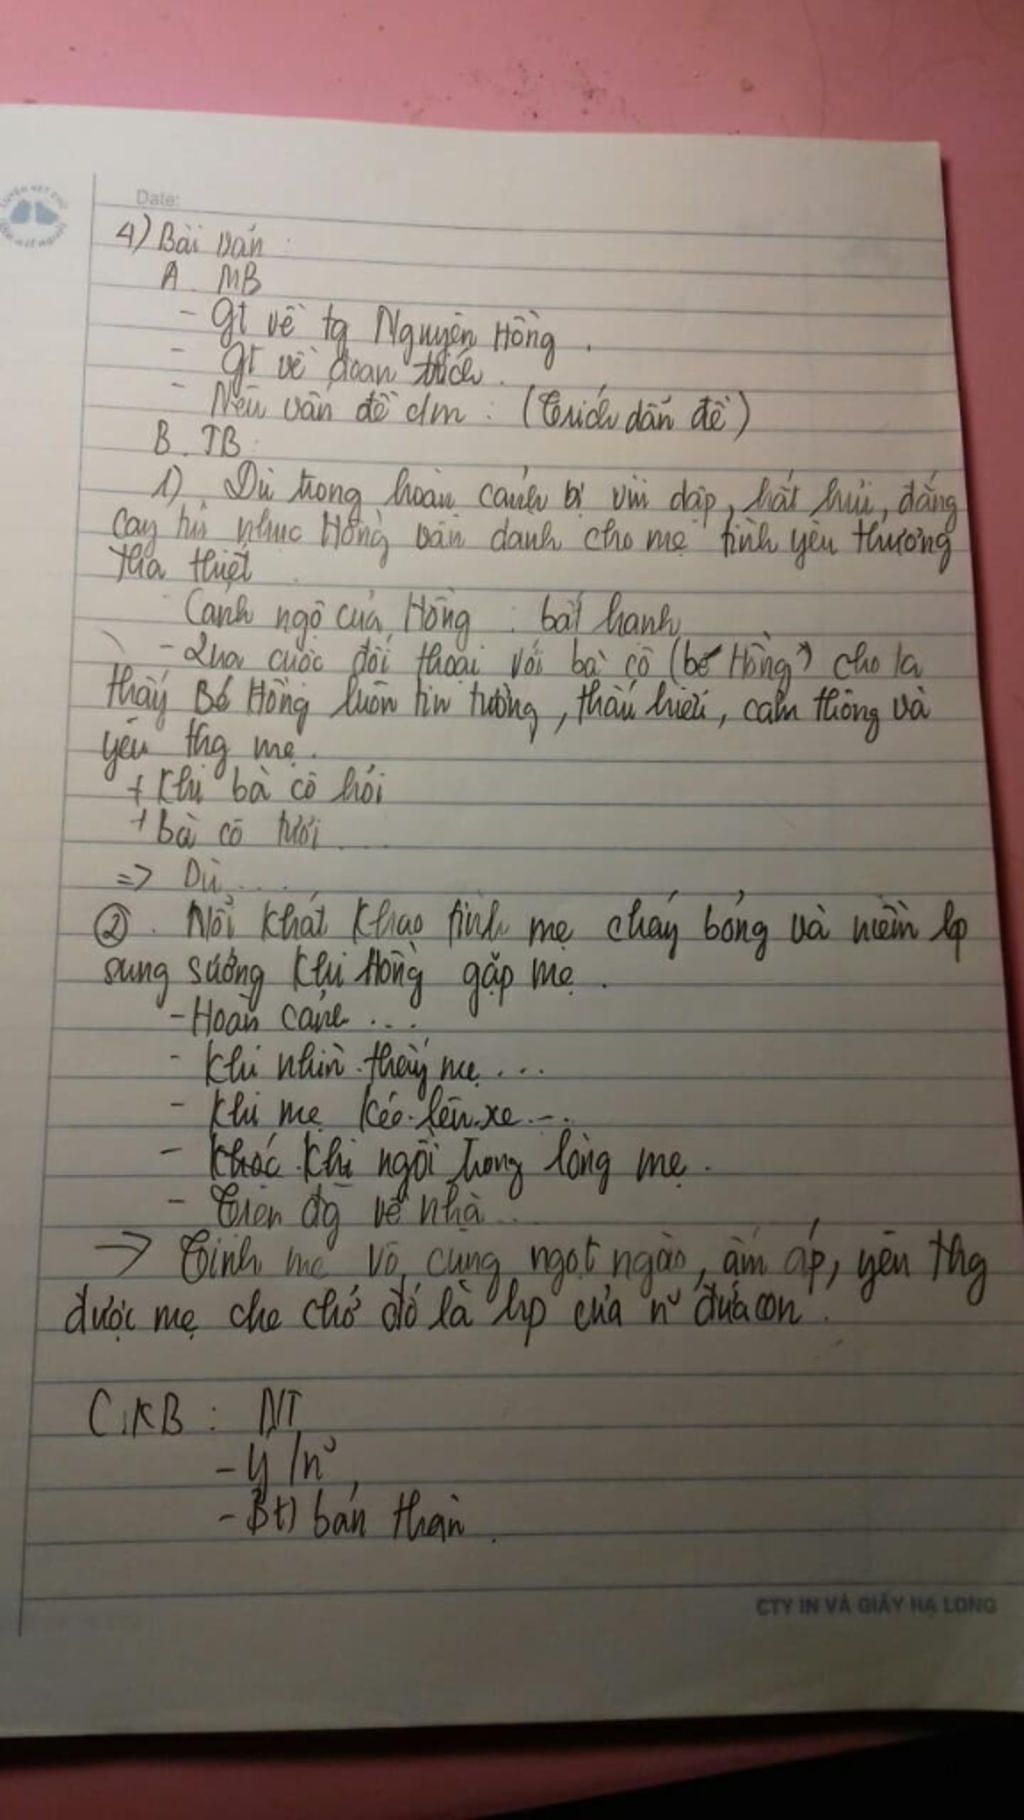 Date:
4) Bài văn :
A. MB
- gt về tg Nguyên Hồng.
- gt về đoạn trích.
- Nêu vấn đề cm : (Trích dẫn đề)
B. TB :
1). Dù trong hoàn cảnh bị vùi dập, hắt hủi, đắng
cay tủi nhục Hồng vẫn dành cho mẹ tình yêu thương
tha thiết.
Cảnh ngộ của Hồng : bất hạnh
- Qua cuộc đối thoại với bà cô (bé Hồng) cho ta
thấy Bé Hồng luôn tin tưởng, thấu hiểu, cảm thông và
yêu thg mẹ.
+ Khi bà cô hỏi
+ bà cô tươi ...
=> Dù ...
② . Nỗi khát khao tình mẹ cháy bỏng và niềm hp
sung sướng khi Hồng gặp mẹ.
- Hoàn cảnh ...
- Khi nhìn thấy mẹ ...
- Khi mẹ kéo lên xe ...
- Khóc khi ngồi trong lòng mẹ.
- Trên đg về nhà ...
-> Tình mẹ vô cùng ngọt ngào, ấm áp, yêu thg
được mẹ che chở đó là hp của n~ đứa con.
C. KB : NT
- Ý /n~
- bản thân.
CTY IN VÀ GIẤY HẠ LONG